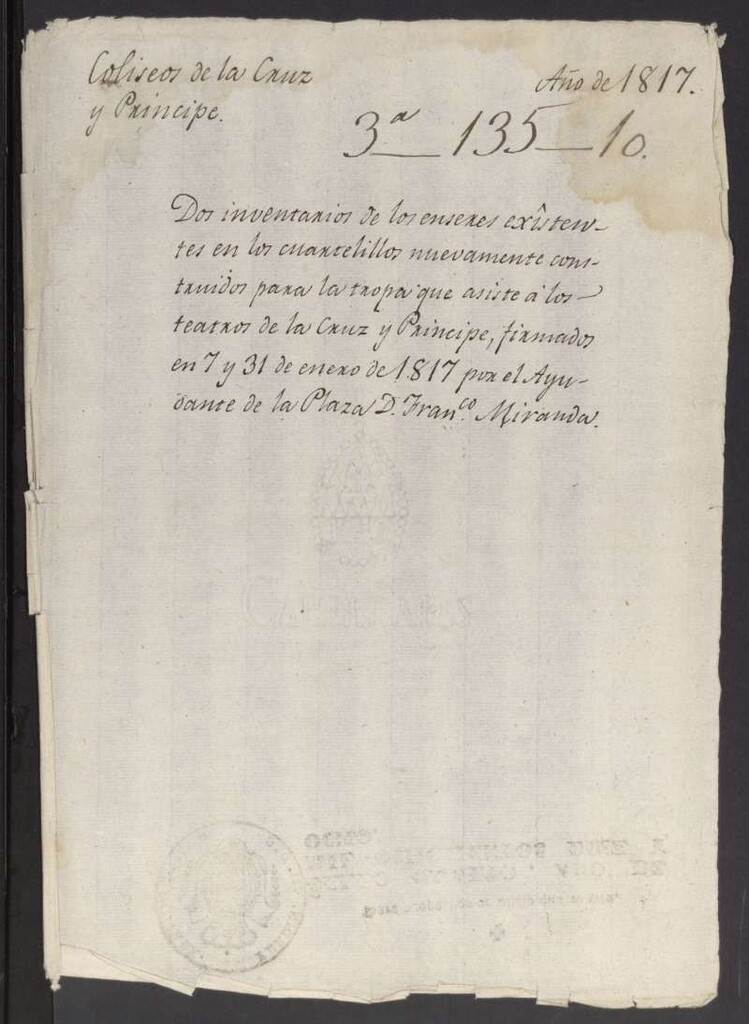 Coliseos de la Cruz
y Principe.
Año de 1817.
3ª 135 10.
Dos inventarios de los enseres exîsten-
tes en los cuartelillos nuevamente cons-
truidos para la tropa que asiste á los
teatros de la Cruz y Principe, firmados
en 7 y 31 de enero de 1817 por el Ayu-
dante de la Plaza D. Fran.co Miranda.